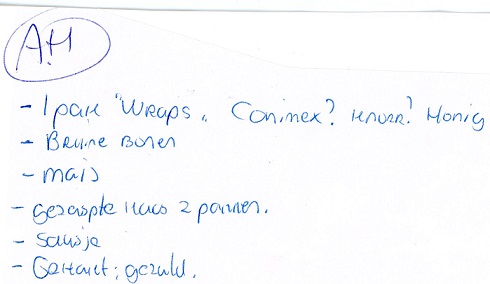 AH
- 1 pak "Wraps" Conimex? Knorr? Honig
- Bruine Bonen
- mais
- geraspte kaas 2 pannen.
- sausje
- Gehakt; gekruid.